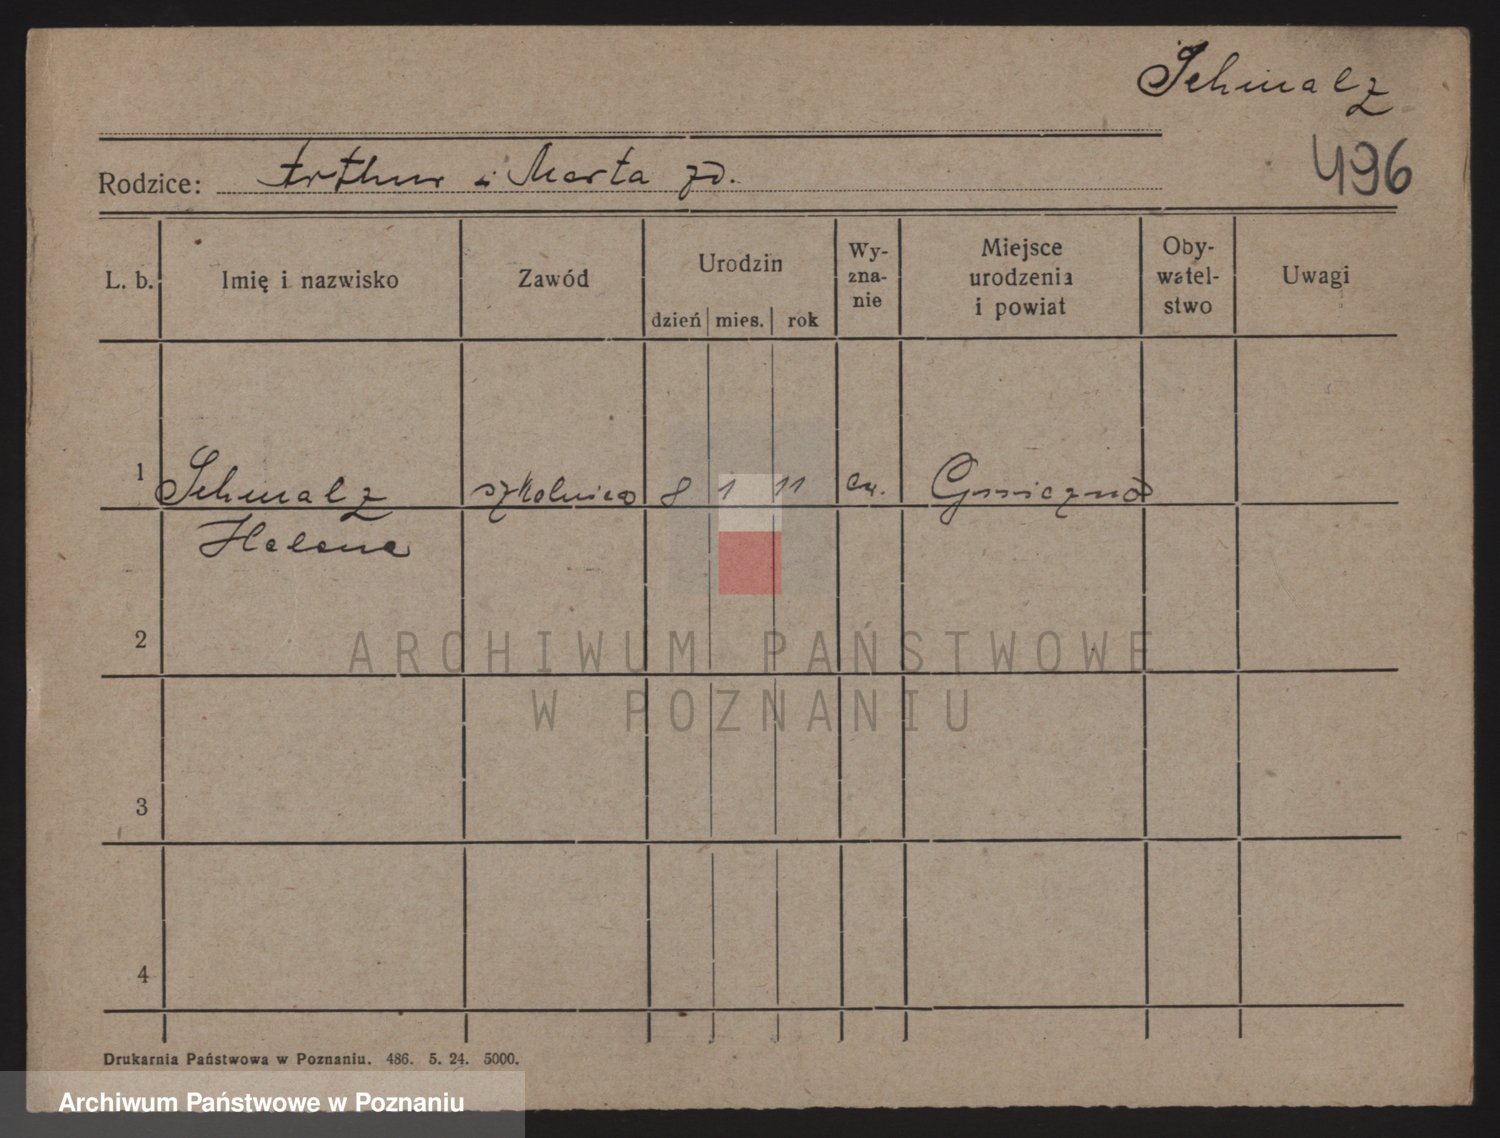 Schmalz
496
Rodzice: Arthur i Marta zd.
L. b. Imię i nazwisko Zawód Urodzin Wy-
zna-
nie Miejsce
urodzenia
i powiat Oby-
watel-
stwo Uwagi
dzień mies. rok
1 Schmalz szkolnica 8 1 11 ew.
Helena
2
3
4
ARCHIWUM PAŃSTWOWE
W POZNANIU
Drukarnia Państwowa w Poznaniu. 486. 5. 24. 5000.
Archiwum Państwowe w Poznaniu